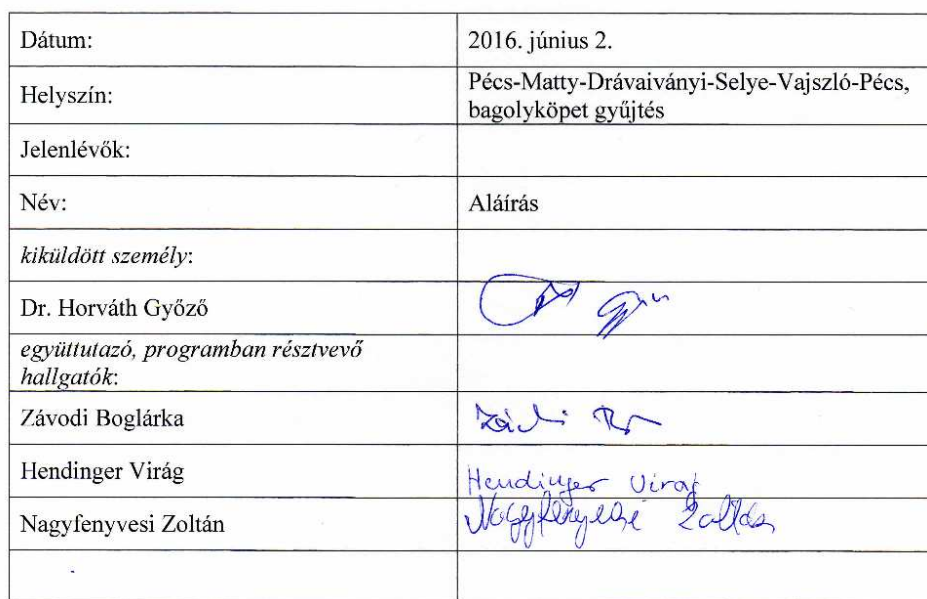 Dátum: 2016. június 2.
Helyszín: Pécs-Matty-Drávaiványi-Selye-Vajszló-Pécs,
bagolyköpet gyűjtés
Jelenlévők:
Név: Aláírás
kiküldött személy:
Dr. Horváth Győző
együttutazó, programban résztvevő
hallgatók:
Závodi Boglárka
Hendinger Virág Hendinger Virág
Nagyfenyvesi Zoltán Nagyfenyvesi Zoltán